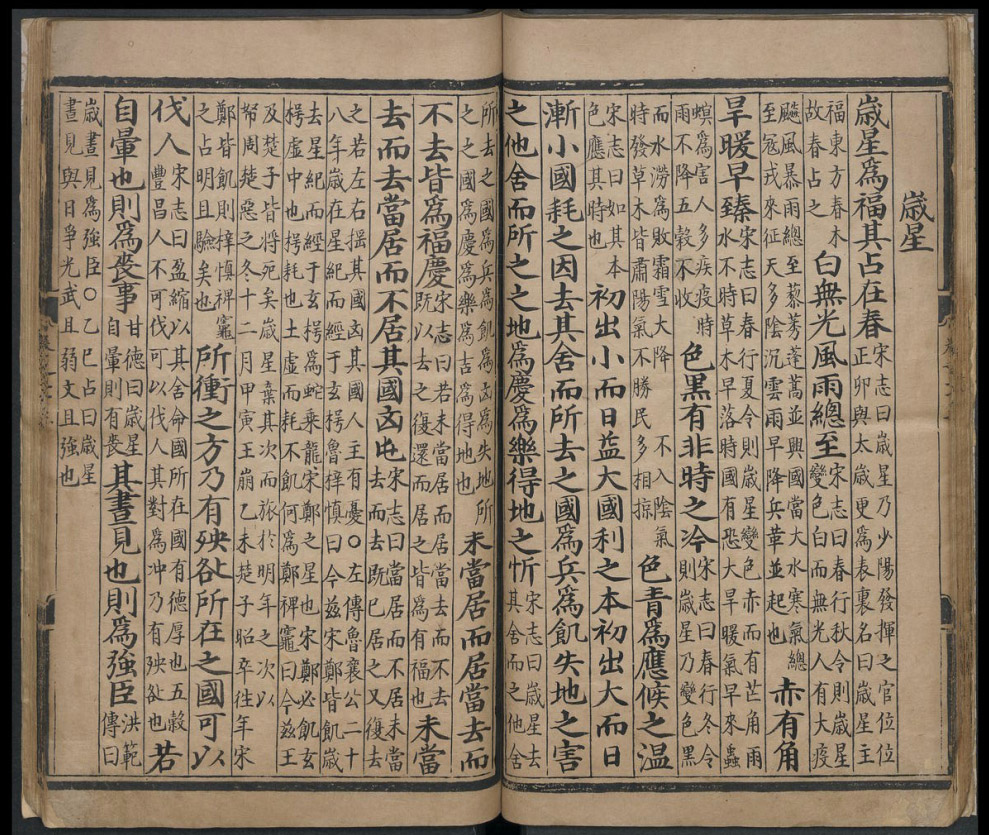 歲星
歲星爲福其占在春
宋志曰歲星乃少陽發揮之官位位
正卯與太歲更爲表裏名曰歲星主
福東方春木
故春占之
白無光風雨總至
宋志曰春行秋令則歲星
變色白而無光人有大疫
飈風暴雨總至藜莠蓬蒿並興國當大水寒氣總
至寇戎來征天多陰沉雲雨早降兵革並起也
赤有角
旱暖早臻
宋志曰春行夏令則歲星變色赤而有芒角雨
水不時草木早落時國有恐大旱暖氣早來蟲
螟爲害人多疾疫時
雨不降五穀不收
色黑有非時之冷
宋志曰春行冬令
則歲星乃變色黑
而水潦爲敗霜雪大降不入陰氣
時發草木皆肅陽氣不勝民多相掠
色青爲應候之温
宋志曰如其本
色應其時也
初出小而日益大國利之本初出大而日
漸小國耗之因去其舍而所去之國爲兵爲飢失地之害
之他舍而所之之地爲慶爲樂得地之忻
宋志曰歲星去
其舍而之他舍
所去之國爲兵爲飢爲凶爲失地所
之之國爲慶爲樂爲吉爲得地也
未當居而居當去而
不去皆爲福慶
宋志曰若未當居而居當去而不去
既以去之復還而居之皆爲有福也
未當
去而去當居而不居其國凶也
宋志曰當居而不居未當
去而去既已居之又復去
之若左右揺其國凶其國人主有憂○左傳魯襄公二十
八年歲在星紀而經于玄枵魯梓慎曰今兹宋鄭皆飢歲
去星紀而經于玄枵爲蛇乘龍宋鄭之星也宋鄭必飢玄
枵虛中也枵耗也土虛而耗不飢何爲鄭禆竈曰今兹王
及楚子皆將死矣歲星棄其次而旅於明年之次以
帑周楚惡之冬十二月甲寅王崩乙未楚子昭卒徃年宋
鄭皆飢則梓慎禆竈
之占明且驗矣也
所衝之方乃有殃咎所在之國可以
伐人
宋志曰盈縮以其舍命國所在國有德厚也五穀
豐昌人不可伐可以伐人其對爲冲乃有殃咎也
若
自暈也則爲喪事
甘德曰歲星
自暈則有喪
其晝見也則爲強臣
洪範
傳曰
歲晝見爲強臣○乙巳占曰歲星
晝見與日爭光武且弱文且強也